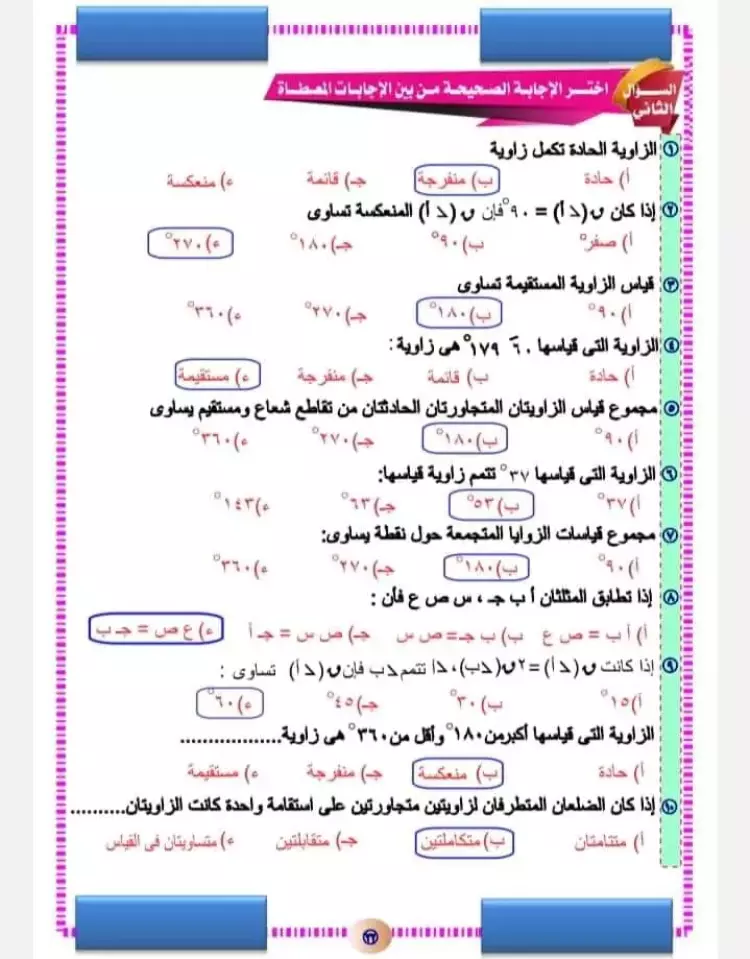 السؤال الثاني
اختر الإجابة الصحيحة من بين الإجابات المعطاة
١ الزاوية الحادة تكمل زاوية
أ) حادة ب) منفرجة جـ) قائمة ء) منعكسة
٢ إذا كان ں(ﮮ أ) = ٩٠° فإن ں(ﮮ أ) المنعكسة تساوى
أ) صفر° ب) ٩٠° جـ) ١٨٠° ء) ٢٧٠°
٣ قياس الزاوية المستقيمة تساوى
أ) ٩٠° ب) ١٨٠° جـ) ٢٧٠° ء) ٣٦٠°
٤ الزاوية التى قياسها ٦٠َ ١٧٩° هى زاوية :
أ) حادة ب) قائمة جـ) منفرجة ء) مستقيمة
٥ مجموع قياس الزاويتان المتجاورتان الحادثتان من تقاطع شعاع ومستقيم يساوى
أ) ٩٠° ب) ١٨٠° جـ) ٢٧٠° ء) ٣٦٠°
٦ الزاوية التى قياسها ٣٧° تتمم زاوية قياسها:
أ) ٣٧° ب) ٥٣° جـ) ٦٣° ء) ١٤٣°
٧ مجموع قياسات الزوايا المتجمعة حول نقطة يساوى:
أ) ٩٠° ب) ١٨٠° جـ) ٢٧٠° ء) ٣٦٠°
٨ إذا تطابق المثلثان أ ب جـ ، س ص ع فأن :
أ) أ ب = ص ع ب) ب جـ = ص س جـ) ص س = جـ أ ء) ع ص = جـ ب
٩ إذا كانت ں(ﮮ أ) = ٢ ں(ﮮ ب) ، ﮮ أ تتمم ﮮ ب فإن ں(ﮮ أ) تساوى :
أ) ١٥° ب) ٣٠° جـ) ٤٥° ء) ٦٠°
الزاوية التى قياسها أكبر من ١٨٠° وأقل من ٣٦٠° هى زاوية..................
أ) حادة ب) منعكسة جـ) منفرجة ء) مستقيمة
١٠ إذا كان الضلعان المتطرفان لزاويتين متجاورتين على استقامة واحدة كانت الزاويتان..........
أ) متتامتان ب) متكاملتين جـ) متقابلتين ء) متساويتان فى القياس
٢٢